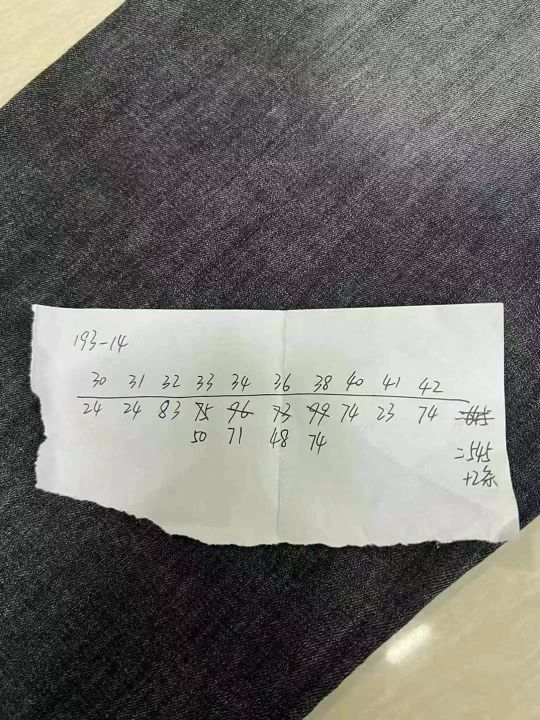 193-14
30 31 32 33 34 36 38 40 41 42
24 24 83 75 96 73 99 74 23 74 =645
50 71 48 74 =545
+2条